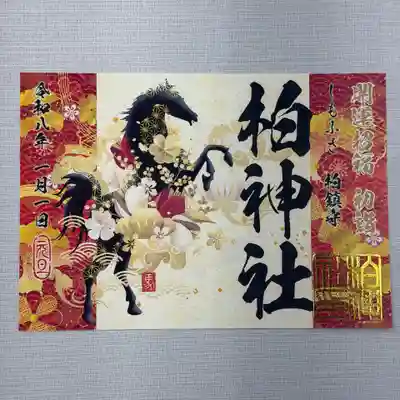 開運招福 初詣
しもふさ 柏鎮守
柏神社
令和八年 一月一日
元旦